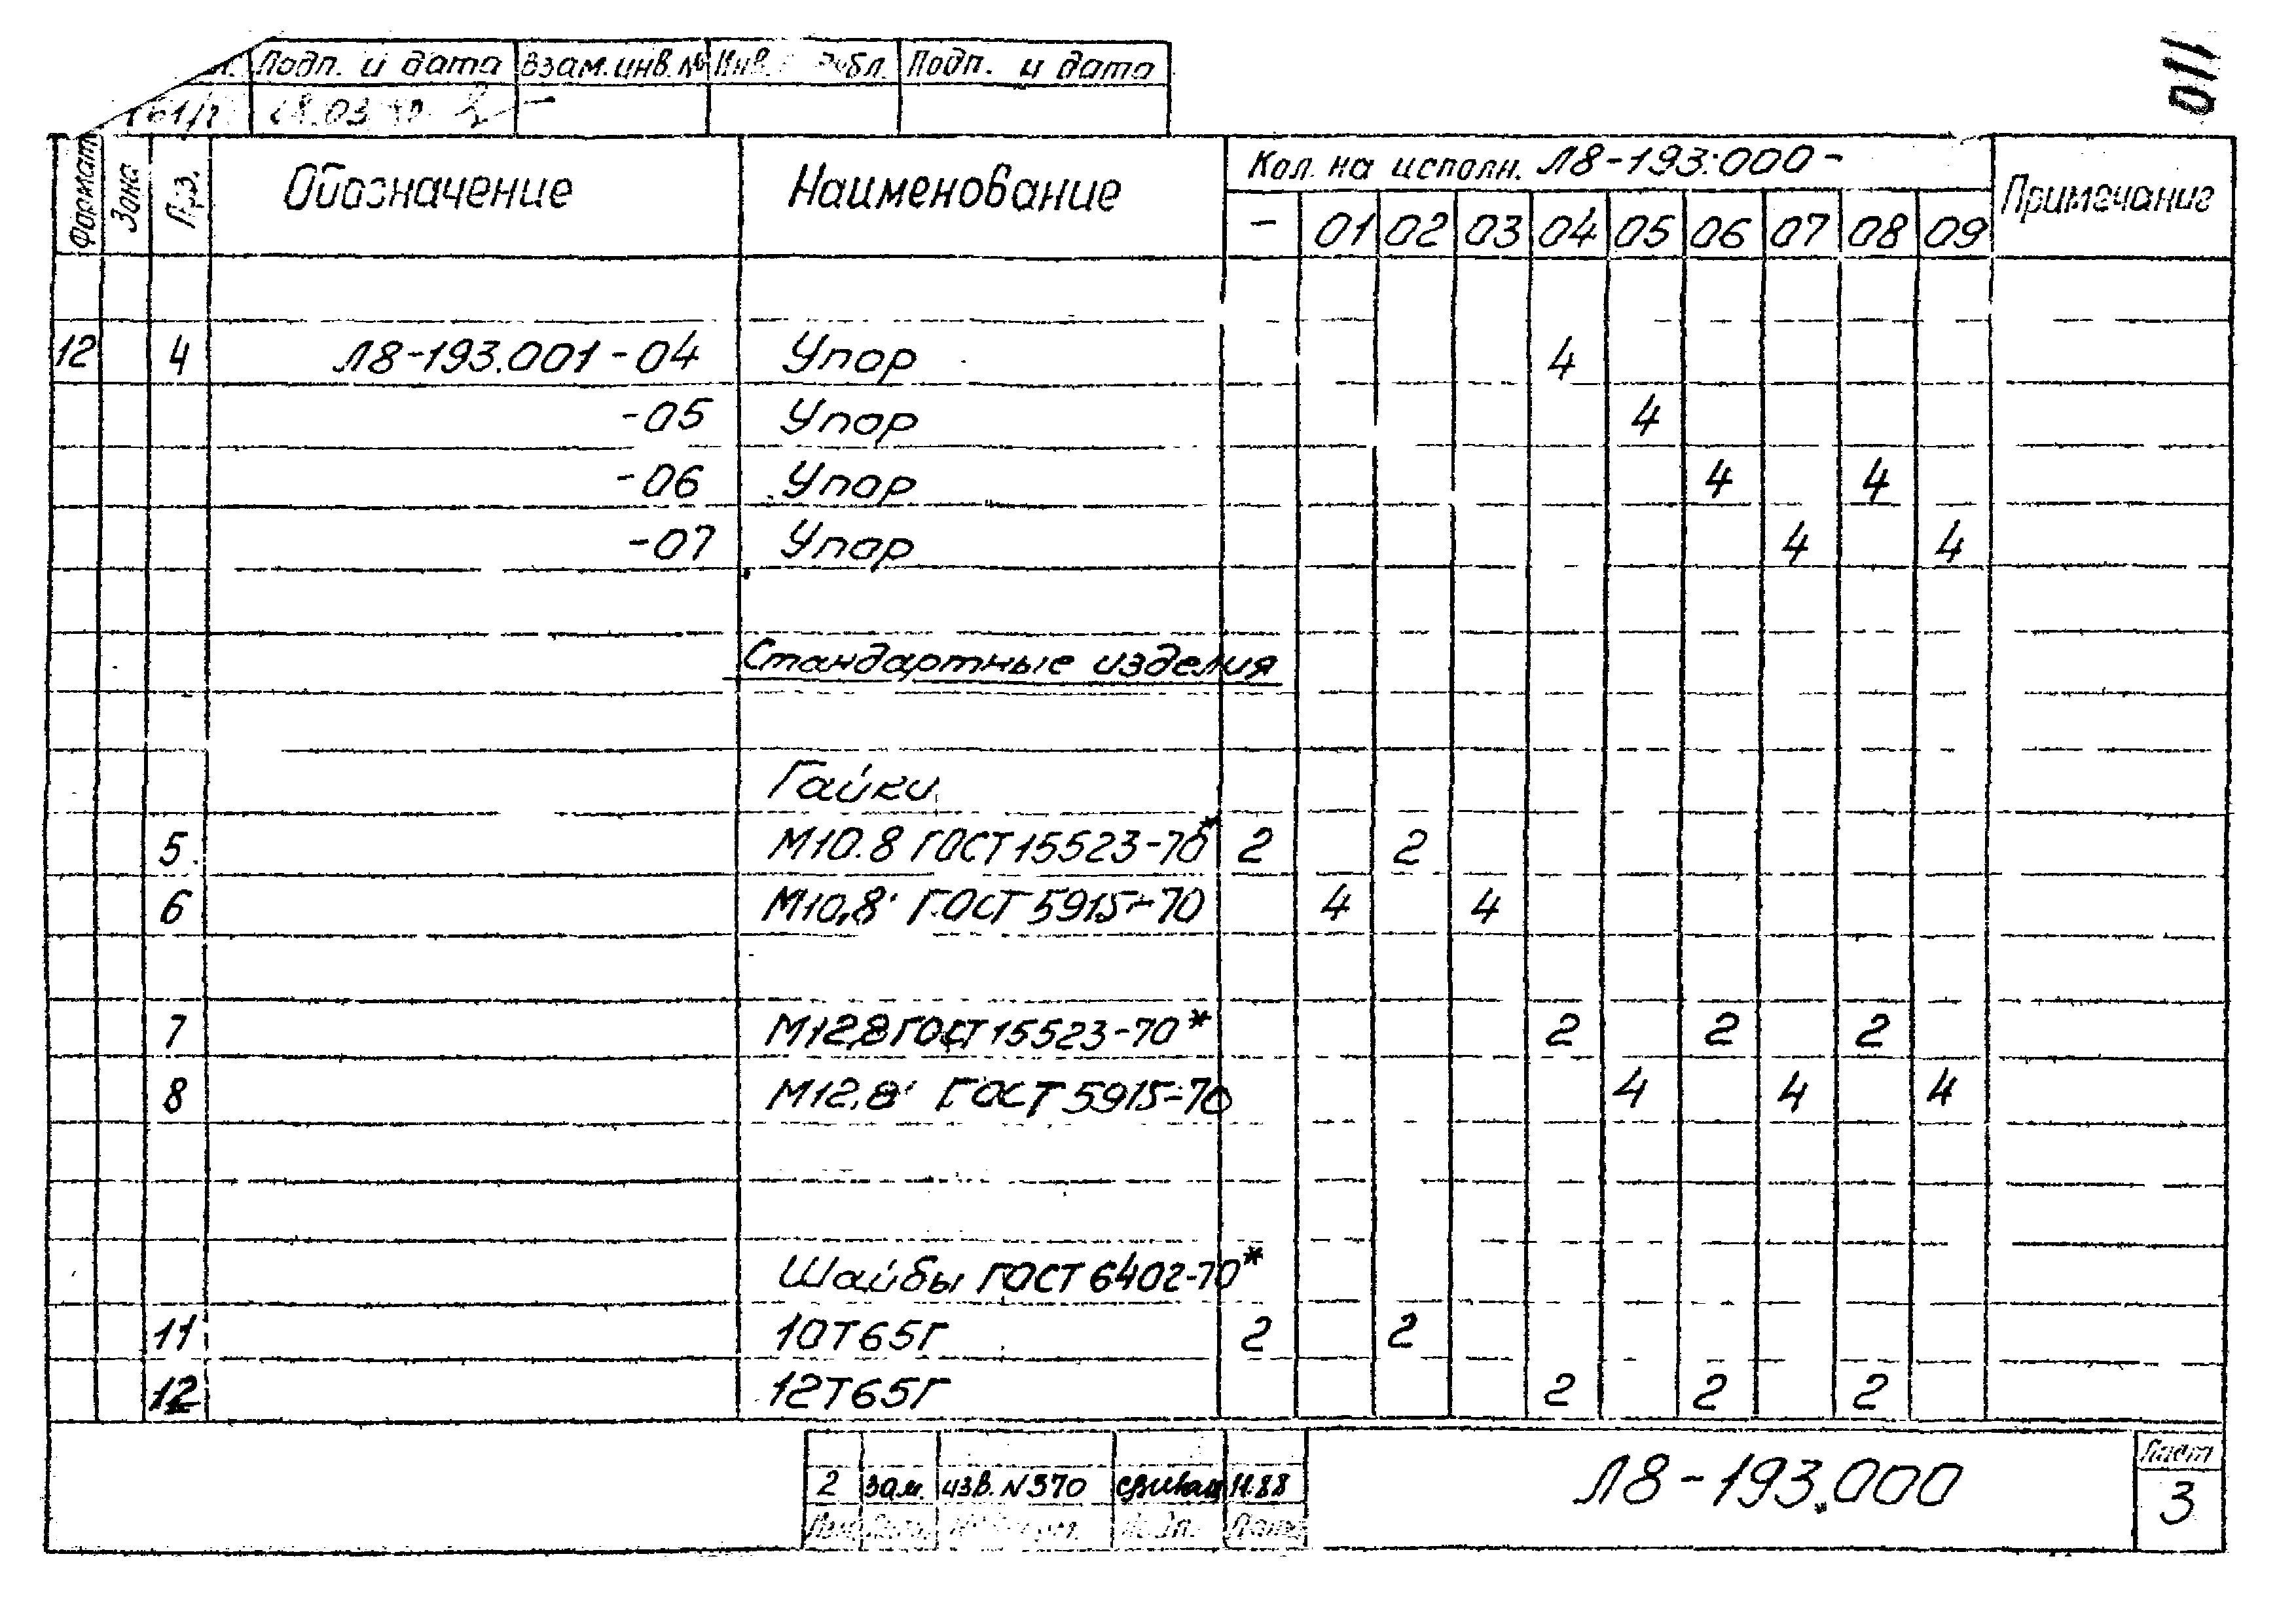 Подп. и дата Взам.инв.№ Инв. Подп. и дата
Формат Зона Поз. Обозначение Наименование Кол. на исполн. Л8-193.000- Примечание
- 01 02 03 04 05 06 07 08 09
12 4 Л8-193.001-04 Упор 4
-05 Упор 4
-06 Упор 4 4
-07 Упор 4 4
Стандартные изделия
Гайки
5 М10.8 ГОСТ 15523-70* 2 2
6 М10.8 ГОСТ 5915-70 4 4
7 М12.8 ГОСТ 15523-70* 2 2 2
8 М12.8 ГОСТ 5915-70 4 4 4
Шайбы ГОСТ 6402-70*
11 10Т65Г 2 2
12 12Т65Г 2 2 2
2 зам. изв. N370 11.88
Л8-193.000
Лист
3
011